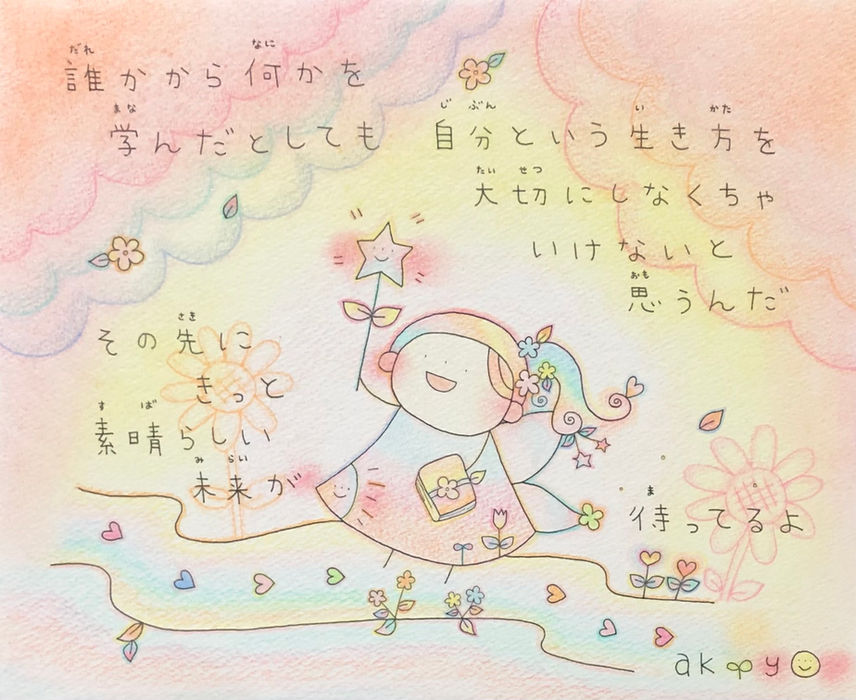 誰かから何かを
学んだとしても
自分という生き方を
大切にしなくちゃ
いけないと
思うんだ
その先に
きっと
素晴らしい
未来が
待ってるよ
akpy